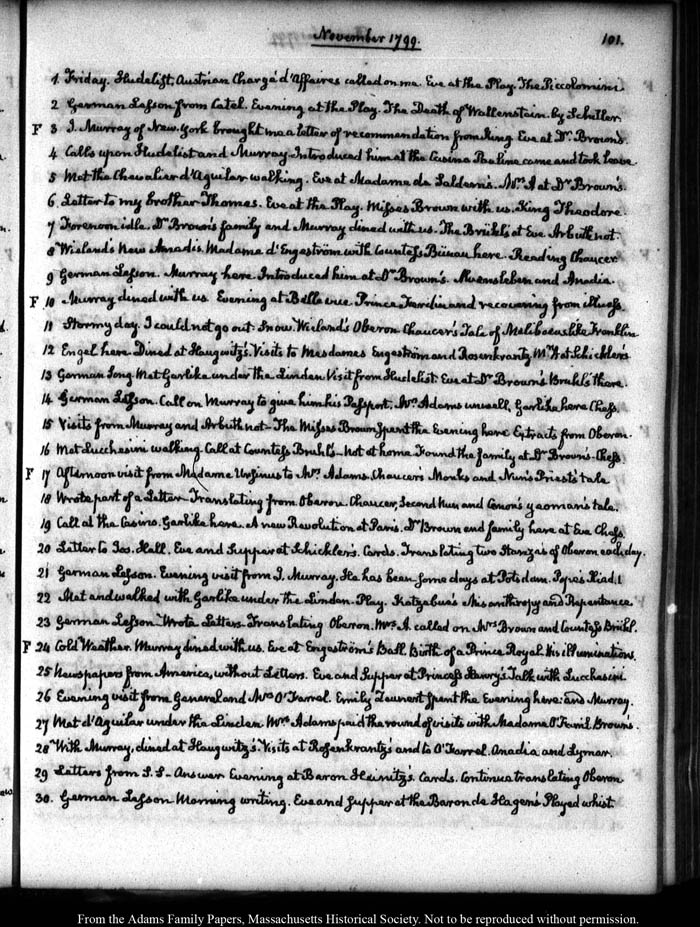 November 1799.
101.
1 Friday. Hudelist, Austrian Chargé d'Affaires called on me. Eve at the Play. The Piccolomini
2 German Lesson from Catel. Evening at the Play. The Death of Wallenstein by Schiller
F 3 J. Murray of New York brought me a letter of recommendation from King Eve at Dr. Brown's.
4 Calls upon Hudelist and Murray Introduced him at the Casino Pauline came and took leave
5 Met the Chevalier d'Aguilar walking. Eve at Madame de Saldern's. Mrs. A at Dr. Brown's.
6 Letter to my brother Thomas. Eve at the Play. Misses Brown with us. King Theodore.
7 Forenoon idle. Dr. Brown's family and Murray dined with us. The Brühls at Eve. Arbuthnot.
8 Wieland's New Amadis. Madame d'Engeström with Countess Bünau here. Reading Chaucer
9 German Lesson. Murray here. Introduced him at Dr. Brown's. Alvensleben and Anadia.
F 10 Murray dined with us. Evening at Bellevue. Prince Ferdinand recovering from illness.
11 Stormy day. I could not go out. Snow. Wieland's Oberon Chaucer's Tale of Meliboeus like Franklin
12 Engel here. Dined at Haugwitz's. Visits to Mesdames Engeström and Rosenkrantz Mrs. A at Schickler's
13 German Song. Met Garlike under the Linden Visit from Hudelist. Eve at Dr. Brown's Bruhl's there.
14 German Lesson. Call on Murray to give him his Passport. Mrs. Adams unwell, Garlike here Chess.
15 Visits from Murray and Arbuthnot. The Misses Brown spent the Evening here Extracts from Oberon.
16 Met Lucchesini walking. Call at Countess Bruhl's. Not at home. Found the family at Dr. Brown's. Chess
F 17 Afternoon visit from Madame Ursinus to Mrs. Adams. Chaucer's Monks and Nun's Priest's tale
18 Wrote part of a Letter. Translating from Oberon. Chaucer, Second Nun and Canon's yeoman's tale.
19 Call at the Casino. Garlike here. A new Revolution at Paris. Dr. Brown and family here at Eve Chess.
20 Letter to Jos. Hall. Eve and Supper at Schicklers. Cards. Translating two Stanza's of Oberon each day.
21 German Lesson. Evening visit from J. Murray. He has been some days at Potsdam. Pope's Iliad. 1
22 Met and walked with Garlike under the Linden. Play. Kotzebue's Misanthropy and Repentance
23 German Lesson. Wrote Letters. Translating Oberon. Mrs. A. called on Mrs Brown and Countess Brühl.
F 24 Cold Weather. Murray dined with us. Eve at Engeström's Ball Birth of a Prince Royal. His illuminations.
25 Newspapers from America, without Letters. Eve and Supper at Princess Henry's Talk with Lucchesini
26 Evening visit from General and Mrs O'Farrel. Emily spent the Evening here: and Murray.
27 Met d'Aguilar under the Linden Mrs. Adams paid the round of visits with Madame O'Farril Brown's.
28 With Murray, dined at Haugwitz's. Visits at Rosenkrantz's and to O'Farrel. Anadia and
29 Letters from Answer Evening at Baron Heinitz's. Cards. Continue translating Oberon
30. German Lesson Morning writing. Eve and Supper at the Baron de Hagen's Played whist.
From the Adams Family Papers, Massachusetts Historical Society. Not to be reproduced without permission.